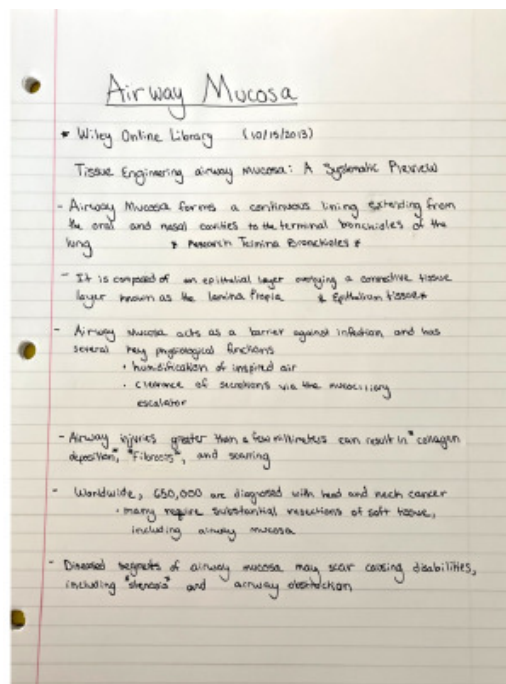 Airway Mucosa
* Wiley Online Library (10/15/2013)
Tissue Engineering airway mucosa: A Systematic Review
- Airway Mucosa forms a continuous lining extending from
the oral and nasal cavities to the terminal bronchioles of the
lung * Research Telmina Bronchioles *
- It is composed of an epithelial layer overlying a connective tissue
layer known as the lamina Propia * Epithelium tissue *
- Airway Mucosa acts as a barrier against infection and has
several key physiological functions
• humidification of inspired air
• clearance of secretions via the mucociliary
escalator
- Airway injuries greater than a few millimeters can result in "collagen
deposition", "Fibrosis", and scarring
- Worldwide, 650,000 are diagnosed with head and neck cancer
• many require substantial resections of soft tissue,
including airway mucosa
- Diseased segments of airway mucosa may scar causing disabilities,
including "stenosis" and airway obstruction